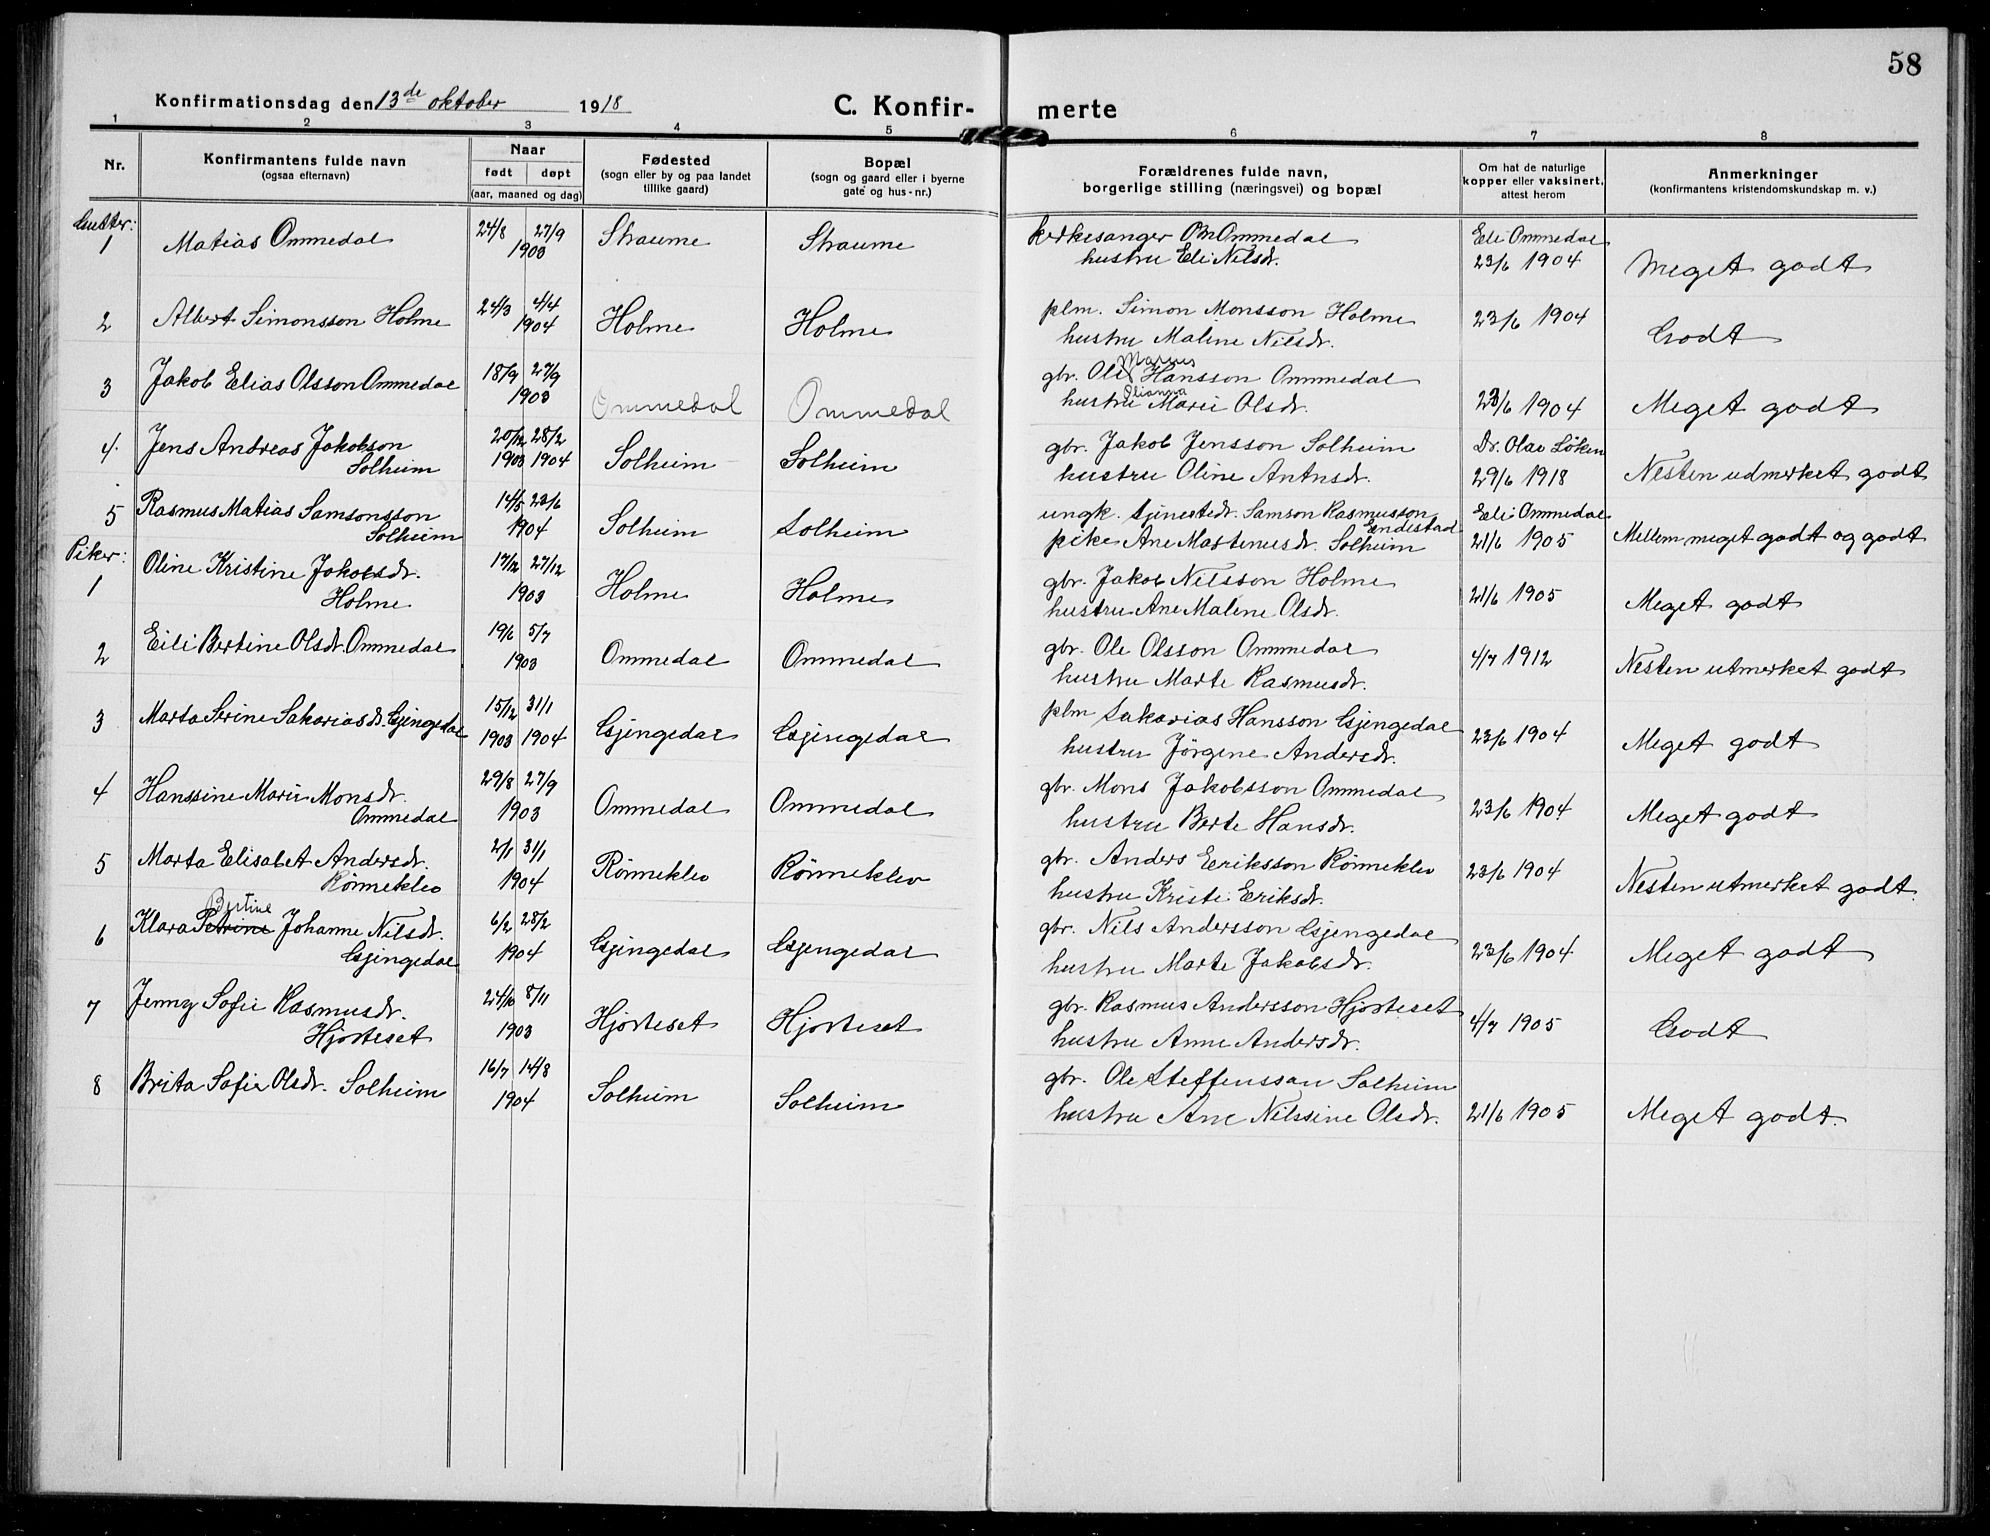 58
Konfirmationsdag den 13de oktober 1918
C. Konfir- merte
1 2 3 4 5 6 7 8
Nr.
Konfirmantens fulde navn
(ogsaa efternavn)
Naar
født døpt
(aar, maaned og dag)
Fødested
(sogn eller by og paa landet
tillike gaard)
Bopæl
(sogn og gaard eller i byerne
gate og hus-nr.)
Forældrenes fulde navn,
borgerlige stilling (næringsvei) og bopæl
Om hat de naturlige
kopper eller vaksinert,
attest herom
Anmerkninger
(konfirmantens kristendomskundskap m. v.)
Gutter:
1 Matias Ommedal 24/8 27/9 1903 Straume Straume kirkesanger Ommedal Eli Ommedal
hustru Eli Nilsdr. 23/6 1904 Meget godt
2 Albert Simonsson Holme 24/3 4/4 1904 Holme Holme plm. Simon Monsson Holme 23/6 1904
hustru Malene Nilsdr. Godt
3 Jakob Elias Olsson Ommedal 18/9 27/9 1903 Ommedal Ommedal gbr. Ole Marius Hansson Ommedal
hustru Marie Olsdr. 23/6 1904 Meget godt
4. Jens Andreas Jakobson 20/12 28/2 gbr. Jakob Jensson Solheim Dr. Olav Löken
Solheim 1903 1904 Solheim Solheim hustru Oline Antnsdr. 29/6 1918 Nesten udmerket godt
5 Rasmus Matias Samsonsson 14/5 23/6 ungk. tjenestedr. Samson Rasmusson Endestad Eli Ommedal
Solheim 1904 Solheim Solheim pike Ane Mastenusdr. Solheim 21/6 1905 Mellem meget godt og godt
Piker:
1 Oline Kristine Jakobsdr. 17/12 27/12 gbr. Jakob Nilsson Holme
Holme 1903 Holme Holme hustru Ane Malene Olsdr. 21/6 1905 Meget godt
2 Eili Bertine Olsdr. Ommedal 19/6 5/7 1903 Ommedal Ommedal gbr. Ole Olsson Ommedal
hustru Marte Rasmusdr. 4/7 1912 Nesten utmerket godt
3 Marta Serine Sakariasdr. Gjengedal 15/12 31/1 1903 1904 Gjengedal Gjengedal plm Sakarias Hansson Gjengedal
hustru Jörgine Andersdr. 23/6 1904 Meget godt
4 Hanssine Marie Monsdr. 29/8 27/9 gbr. Mons Jakobsson Ommedal
Ommedal 1903 Ommedal Ommedal hustru Berte Hansdr. 23/6 1904 Meget godt
5 Marta Elisabet Andersdr. 2/1 31/1 gbr. Anders Eriksson Rönneklev
Rönneklev 1904 Rönneklev Rönneklev hustru Kristi Eriksdr. 23/6 1904 Nesten utmerket godt.
Bertine
6 Klara Petrine Johanne Nilsdr. 6/2 28/2 gbr. Nils Andersson Gjengedal
Gjengedal 1904 Gjengedal Gjengedal hustru Marte Jakobsdr. 23/6 1904 Meget godt
7 Jenny Sofie Rasmusdr. 24/10 8/11 gbr. Rasmus Andersson Hjorteset
Hjorteset 1903 Hjorteset Hjorteset hustru Anne Andersdr. 4/7 1905 Godt
8 Brita Sofie Olsdr. Solheim 16/7 14/8 1904 Solheim Solheim gbr. Ole Steffensson Solheim
hustru Ane Nilssine Olsdr. 21/6 1905 Meget godt.